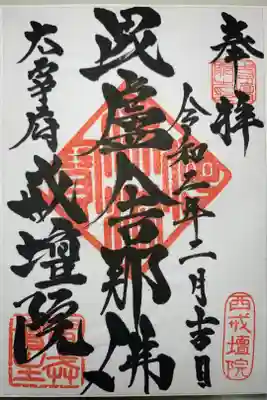 奉拝
令和二年二月吉日
毘盧舎那佛
太宰府
戒壇院
西戒壇院